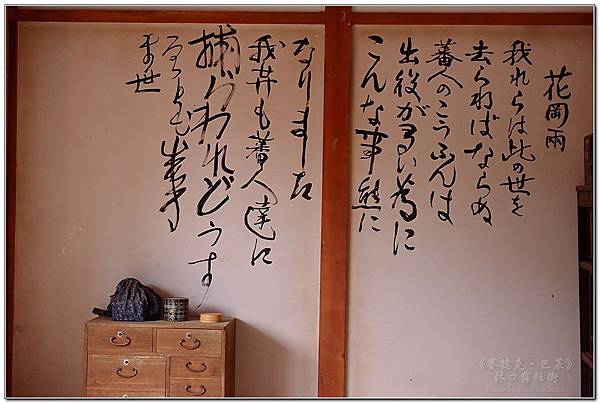 花岡兩
我れらは此の世を
去らねばならぬ
蕃人のこうふんは
出役が多い為に
こんな事態に
なりました
我等も蕃人達に
捕らわれどうす
ることも出来
《賽德克‧巴萊》
林口霧社街